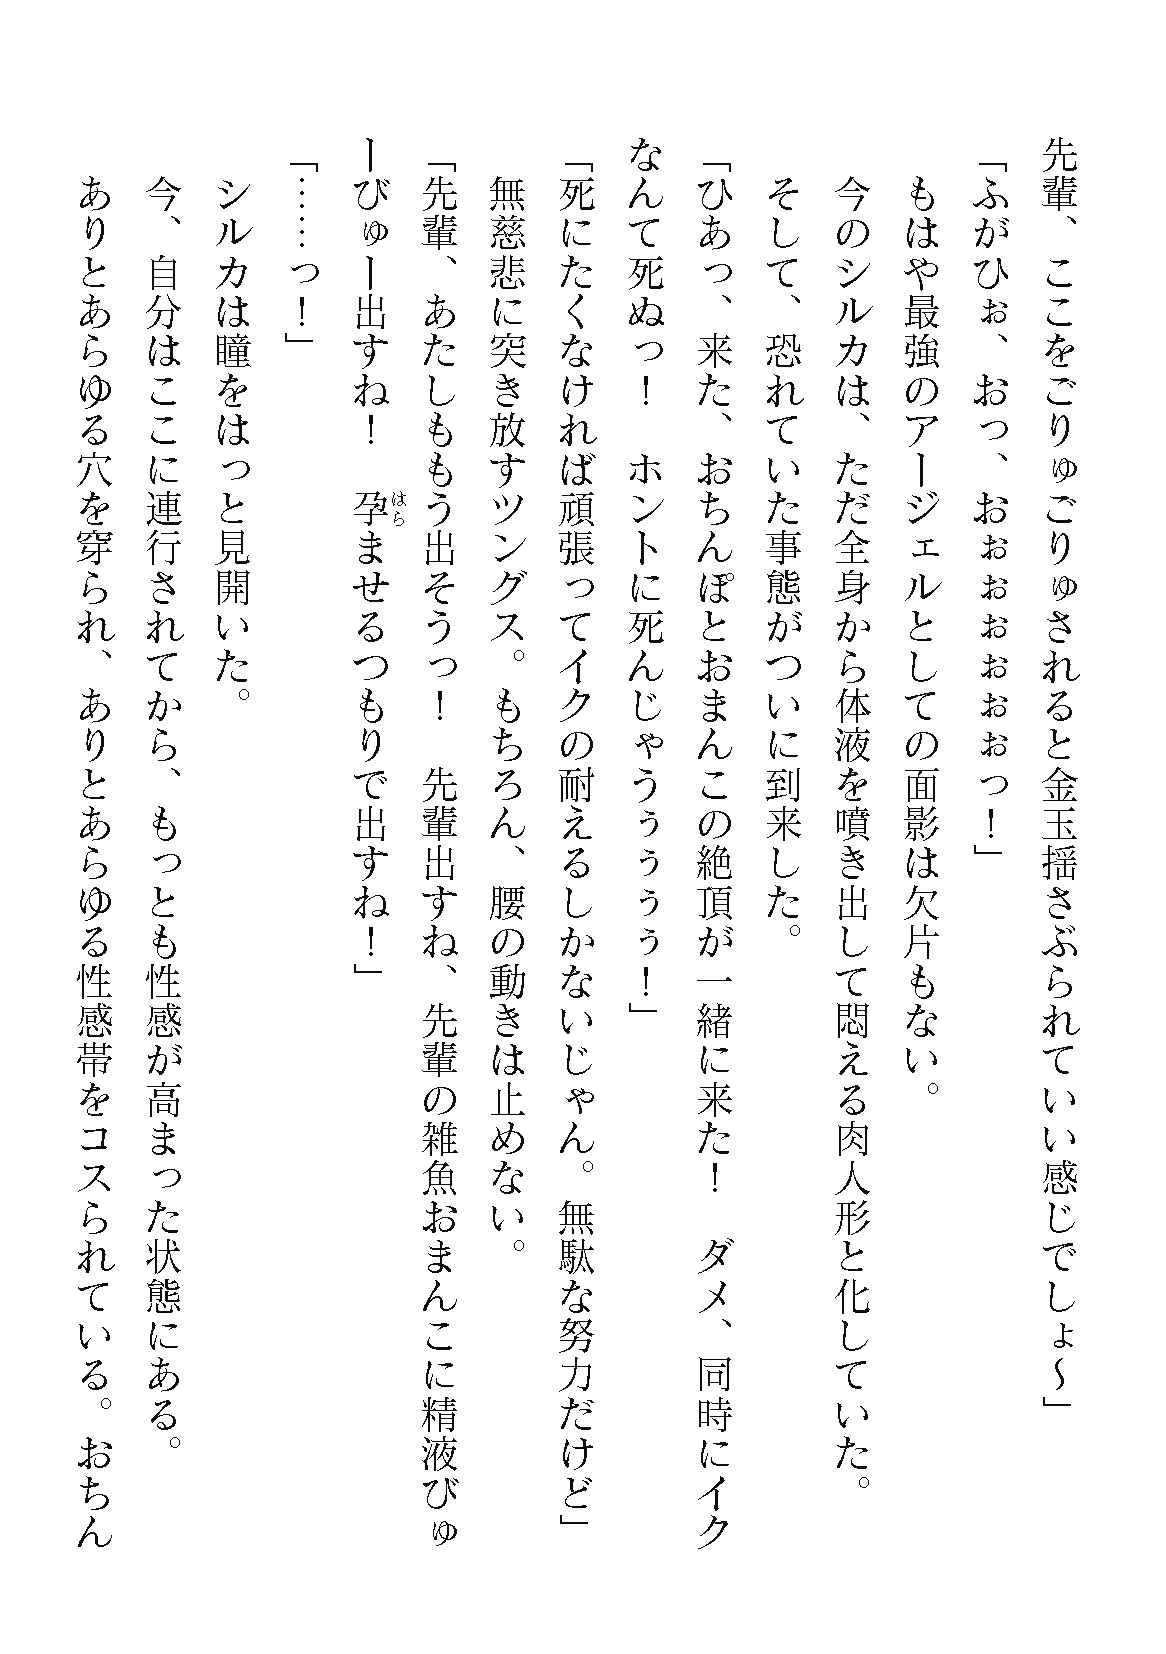 先輩、ここをごりゅごりゅされると金玉揺さぶられていい感じでしょ〜」
「ふがひぉ、おっ、おぉぉぉぉぉぉっ！」
もはや最強のアージェルとしての面影は欠片もない。
今のシルカは、ただ全身から体液を噴き出して悶える肉人形と化していた。
そして、恐れていた事態がついに到来した。
「ひあっ、来た、おちんぽとおまんこの絶頂が一緒に来た！　ダメ、同時にイク
なんて死ぬっ！　ホントに死んじゃうぅぅぅぅ！」
「死にたくなければ頑張ってイクの耐えるしかないじゃん。無駄な努力だけど」
無慈悲に突き放すツングス。もちろん、腰の動きは止めない。
「先輩、あたしももう出そうっ！　先輩出すね、先輩の雑魚おまんこに精液びゅ
ーびゅー出すね！　孕ませるつもりで出すね！」
「……っ！」
シルカは瞳をはっと見開いた。
今、自分はここに連行されてから、もっとも性感が高まった状態にある。
ありとあらゆる穴を穿られ、ありとあらゆる性感帯をコスられている。おちん